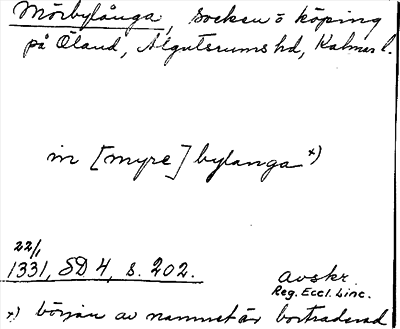 Mörbylånga, socken o köping
på Öland, Algutsrums hd, Kalmar l.
in [myre] bylanga x)
22/1
1331, SD 4, s. 202.
Avskr.
Reg. Eccl. Linc.
x) början av namnet är bortraderad